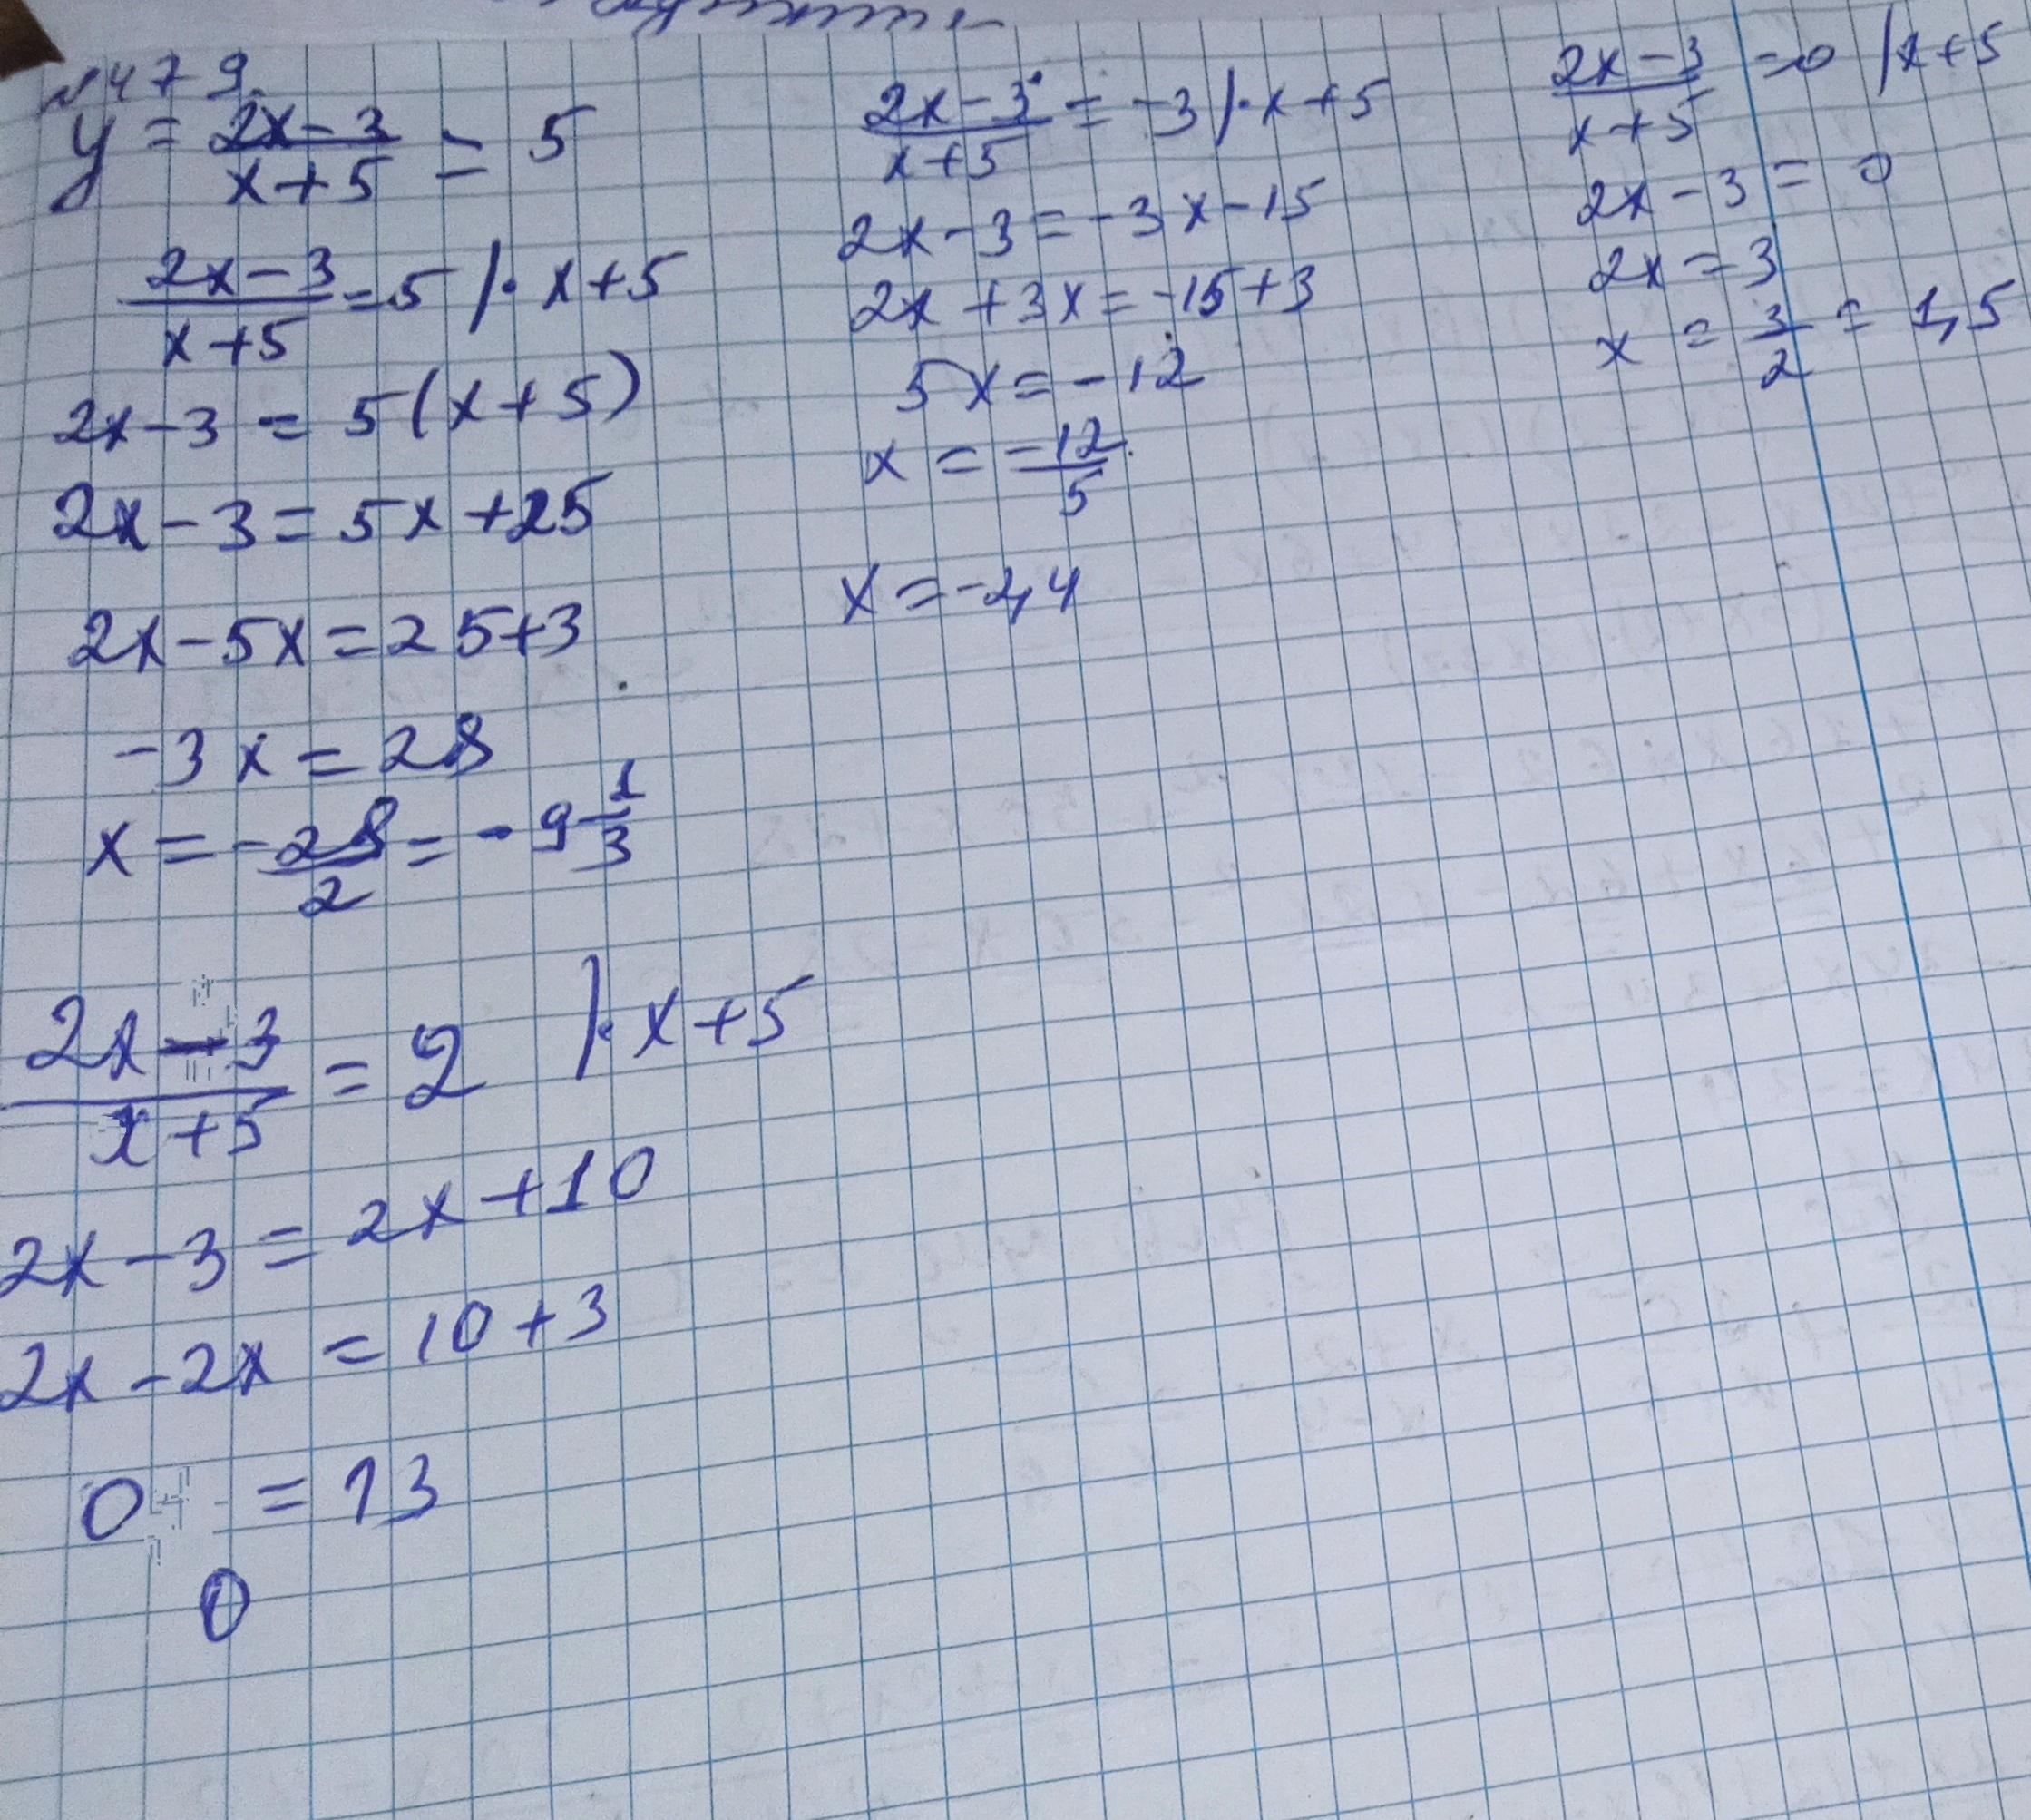 №479
y = (2x-3)/(x+5) = 5
(2x-3)/(x+5) = 5 /· x+5
2x-3 = 5(x+5)
2x-3 = 5x+25
2x-5x = 25+3
-3x = 28
x = -28/2 = -9 1/3
(2x-3)/(x+5) = 2 /· x+5
2x-3 = 2x+10
2x-2x = 10+3
0 = 13
0
(2x-3)/(x+5) = -3 /· x+5
2x-3 = -3x-15
2x+3x = -15+3
5x = -12
x = -12/5
x = -2,4
(2x-3)/(x+5) = 0 /x+5
2x-3 = 0
2x = 3
x = 3/2 = 1,5